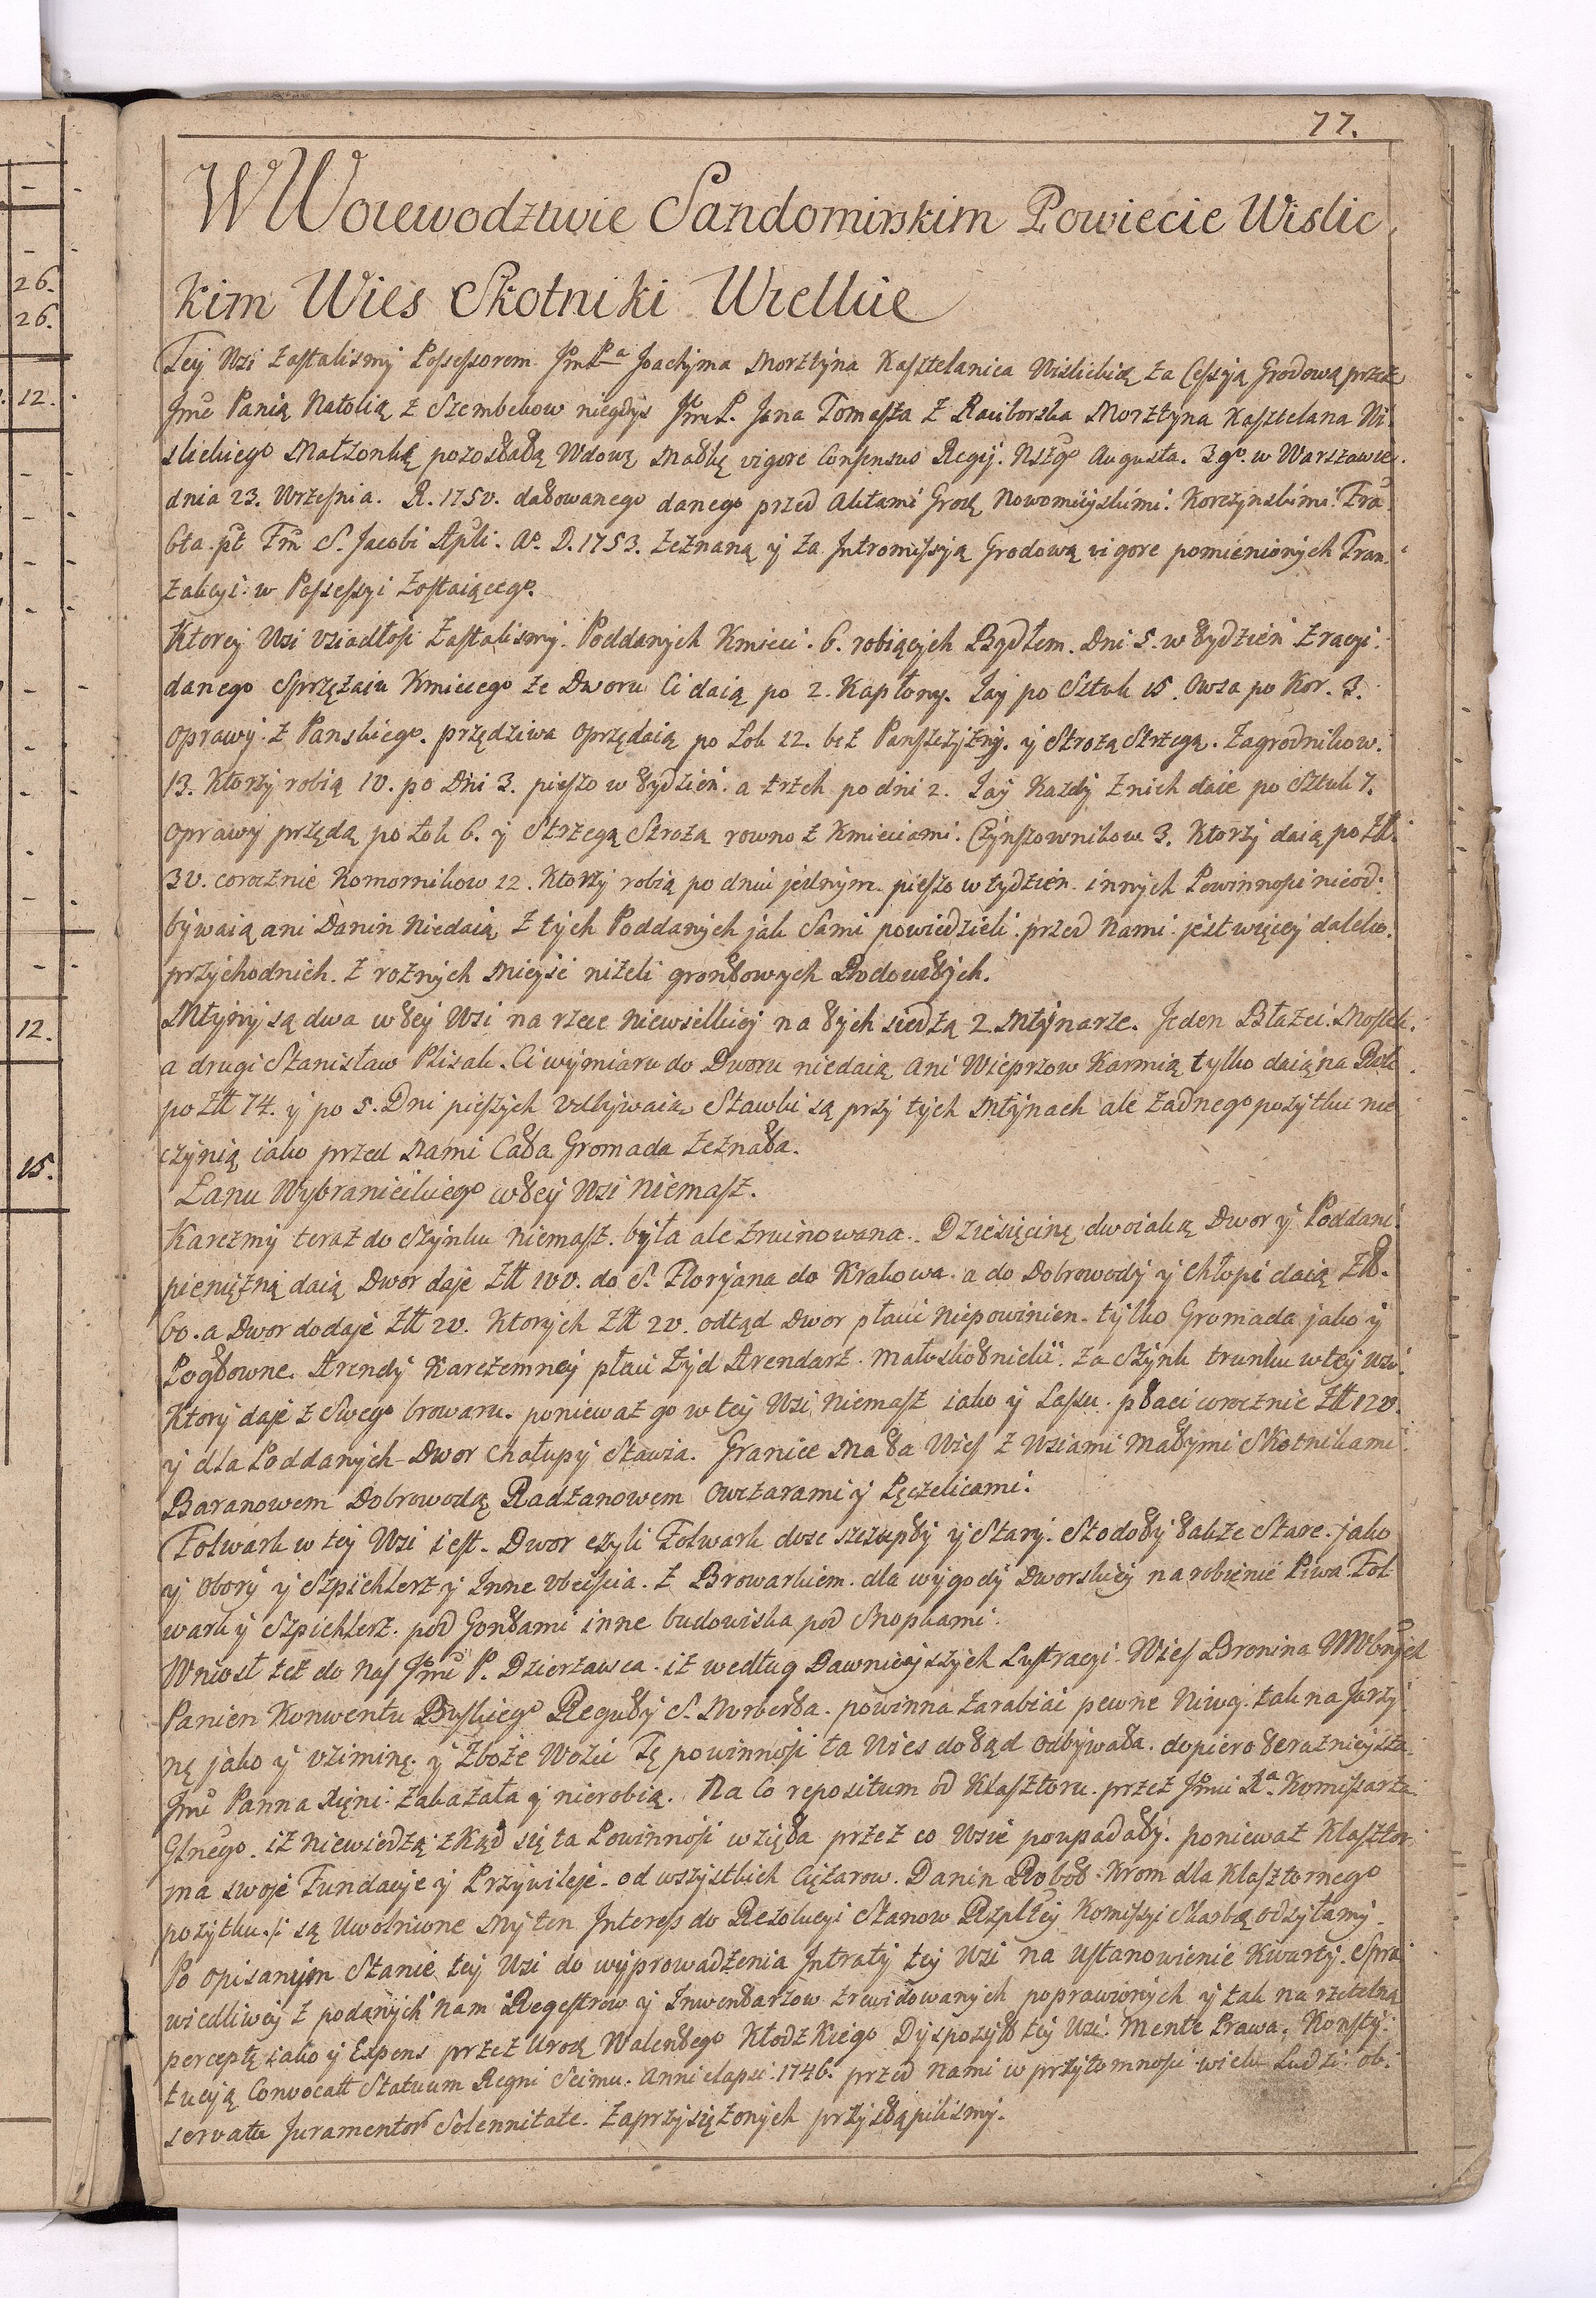 77.
W Woiewodztwie Sandomirskim Powiecie Wislic
kim Wies Skotniki Wielkie
Tey Wsi zastalismy Possessorem JmP^a Joachyma Morsztyna Kasztelanica Wislickie za Cessyą Grodową przez
Jmć Panią Natolią z Szembekow niegdys JmP. Jana Tomasza z Raciborska Morsztyna Kasztelana Wi
slickiego Małzonkę pozostałą Wdowę Matkę vigore Consensus Regij. Nszgo Augusta. 3go. w Warszawie.
dnia 23. Wrzesnia. R. 1750. datowanego danego przed Aktami Grodz Nowomieyskimi. Korczynskimi. Fra
bta. pt Fm S. Jacobi Apli. A^o. D. 1753. zeznaną y za Intromissyą Grodową vigore pomienionych Tran
zakcyi. w Possessyi zostaiącego.
Ktorey Wsi vsiadłosi zastalismy. Poddanych Kmieci. 6. robiących Bydłem. Dni 5. w tydzien z racyi.
danego Sprzęzaiu Kmiecego ze Dworu Ci daią po 2. Kapłony. Jay po Sztuk 15. Owsa po Kor. 3.
Oprawy. z Panskiego. przędziwa Oprzędaią po Łok 12. bez Panszczyzny. y Strozą Strzegą. Zagrodnikow.
13. Ktorzy robią 10. po Dni 3. pieszo w tydzien. a trzch po dni 2. Jay Kazdy z nich daie po Sztuk 7.
Oprawy przędą po Łok 6. y Strzegą Strozą rowno z Kmieciami. Czynszownikow 3. Ktorzy daią po Złt.
30. corocznie Komornikow 12. Ktorzy robią po dniu jednym. pieszo w tydzien. innych Powinnosi nieod.
bywaią ani Danin Niedaią z tych Poddanych jak Sami powiedzieli. przed Nami. jest więcey daleko.
przychodnich. z roznych Mieysc nizeli grontowych Rodowitych.
Młyny są dwa w tey Wsi na rzece Niewielkiey na tych siedzą 2. Młynarze. Jeden Błazei. Mosiek.
a drugi Stanisław Plisak. Ci wymiaru do Dworu niedaią Ani Wieprzow Karmią tylko daią na Rok
po Złt 74. y po 5. Dni pieszych Odbywaią Stawki są przy tych Młynach ale Zadnego pozytku nie
czynią iako przed Nami Cała Gromada Zeznała.
Łanu Wybranieckiego w tey Wsi niemasz.
Karczmy teraz do Szynku niemasz. była ale zruinowana. Dziesięcinę dwoiaką Dwor y Poddani
pienięzną daią Dwor daje Złt 100. do S. Floryana do Krakowa. a do Dobrowody y Chłopi daią Złt.
60. a Dwor dodaje Złt 20. Ktorych Złt 20. odtąd Dwor płaci niepowinien. tylko Gromada jako y
Pogłowne. Arendy Karczemney płaci Zyd Arendarz. Małoskotnicki. za Szynk trunku w tey Wsi.
Ktory daje z Swego browaru. poniewaz go w tey Wsi Niemasz iako y Lassu. płaci corocznie Złt 120.
y dla Poddanych Dwor Chałupy Stawia. Granice Ma ta Wies z Wsiami Małymi Skotnikami.
Baranowem Dobrowodą Radzanowem Owczarami y Łęczelicami.
Folwark w tey Wsi iest. Dwor czyli Folwark dosc szczupły y Stary. Stodoły takze Stare. jako
y Obory y Szpichlerz y Inne vbeiscia. z Browarkiem. dla wygody Dworskiey na robienie Piwa. Fol
wark y Szpichlerz. pod Gontami inne budowiska pod Snopkami.
Wniosł tez do Nas Jmć P. Dzierzawca. iz według Dawnieyszych Lustracyi. Wies Bronina WWbnych
Panien Konwentu Buskiego Reguły S. Norberta. powinna zarabiai pewne Niwy. tak na Jarzy
nę jako y vziminę. y Zboze Wozic Tę powinnosi ta Wies dotąd Odbywała. dopiero teraznieysza
Jmć Panna Xięni. zakazała y nierobią. Na Co repositum od Klasztoru. przez Jmci Xa. Komissarza
Glnego. iz niewiedzą zkąd się ta Powinnosi wzięła przez co Wsie poupadały. poniewaz Klasztor
ma swoje Fundacyje y Przywileje. od wszystkich Cięzarow. Danin Robot. Krom dla Klasztornego
pozytku./. są Uwolnione My ten Interess do Rezolucyi Stanow Rzpltey Komissyi Skarbą odsyłamy.
Po opisanym Stanie tey Wsi do wyprowadzenia Intraty tey Wsi na Ustanowienie Kwarty. Spra
wiedliwey z podanych nam Regestrow y Inwentarzow zrewidowanych poprawionych y tak na rzetelną
perceptę iako y Expens przez Urodz Walentego Kłodzkiego Dyspozyto tey Wsi. Mente Prawa. Konsty.
tucyją Convocatt Statuum Regni Seimu. Anni elapsi. 1746. przed Nami w przytomnosi wielu Ludzi. ob
servata Juramentor Solennitate. Zaprzysięzonych przystąpilismy.
26.
26.
12.
12.
15.